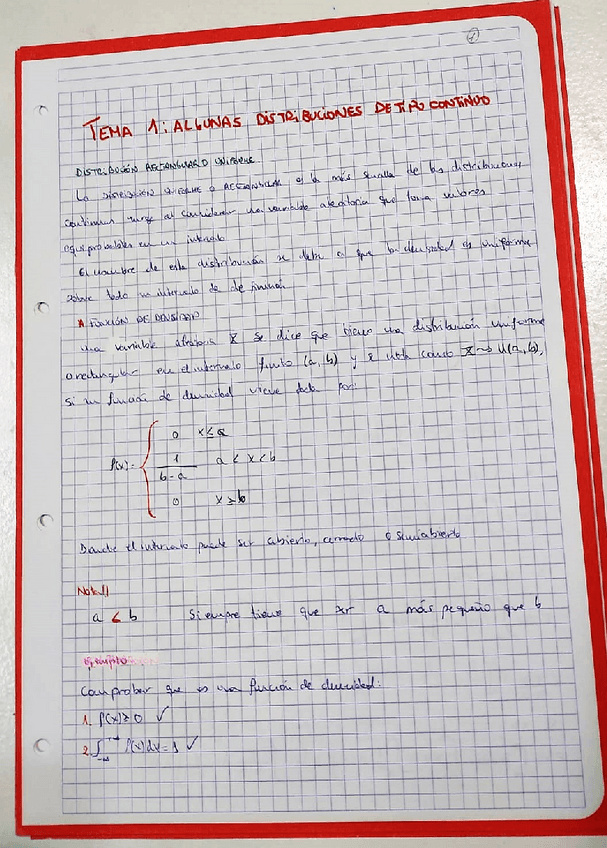 1
TEMA 1: ALGUNAS DISTRIBUCIONES DE TIPO CONTINUO
DISTRIBUCIÓN RECTANGULAR O UNIFORME
La DISTRIBUCIÓN UNIFORME O RECTANGULAR es la más sencilla de las distribuciones
continuas surge al considerar una variable aleatoria que toma valores
equiprobables en un intervalo
El nombre de esta distribución se debe a que la densidad es uniforme
sobre todo un intervalo de
FUNCIÓN DE DENSIDAD
Una variable aleatoria X se dice que tiene una distribución uniforme
o rectangular en el intervalo finito (a, b) y se nota como X ~> U(a, b),
si su función de densidad viene dada por:
0 x ≤ a
f(x) = { 1/(b-a) a < x < b
0 x ≥ b
Donde el intervalo puede ser abierto, cerrado o semiabierto
Nota//
a < b Siempre tiene que ser a más pequeño que b
Ejemplo
Comprobar que es una función de densidad:
1. f(x) ≥ 0 ✓
2. ∫ f(x)dx = 1 ✓